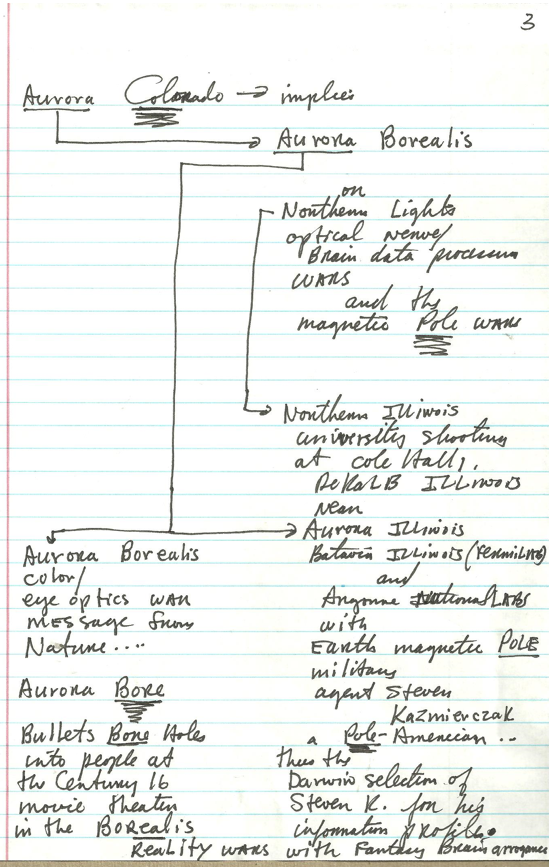 3
Aurora Colorado → implies
Aurora Borealis
or
Northern Lights
optical nerve/
Brain data processing
WARS
and the
magnetic Pole wars
Northern Illinois
university shooting
at Cole Hall,
DeKALB ILLINOIS
near
Aurora Illinois
Batavia Illinois (FermiLAB)
and
Argonne National LABS
with
Earth magnetic POLE
military
agent Steven
Kazmierczak
a Pole-American ..
thus the
Darwin selection of
Steven K. for his
information profile.
Aurora Borealis
color/
eye optics war
message from
Nature....
Aurora Bore
Bullets Bore Holes
into people at
the Century 16
movie theater
in the BORealis
Reality wars with Fantasy Brain arrogance